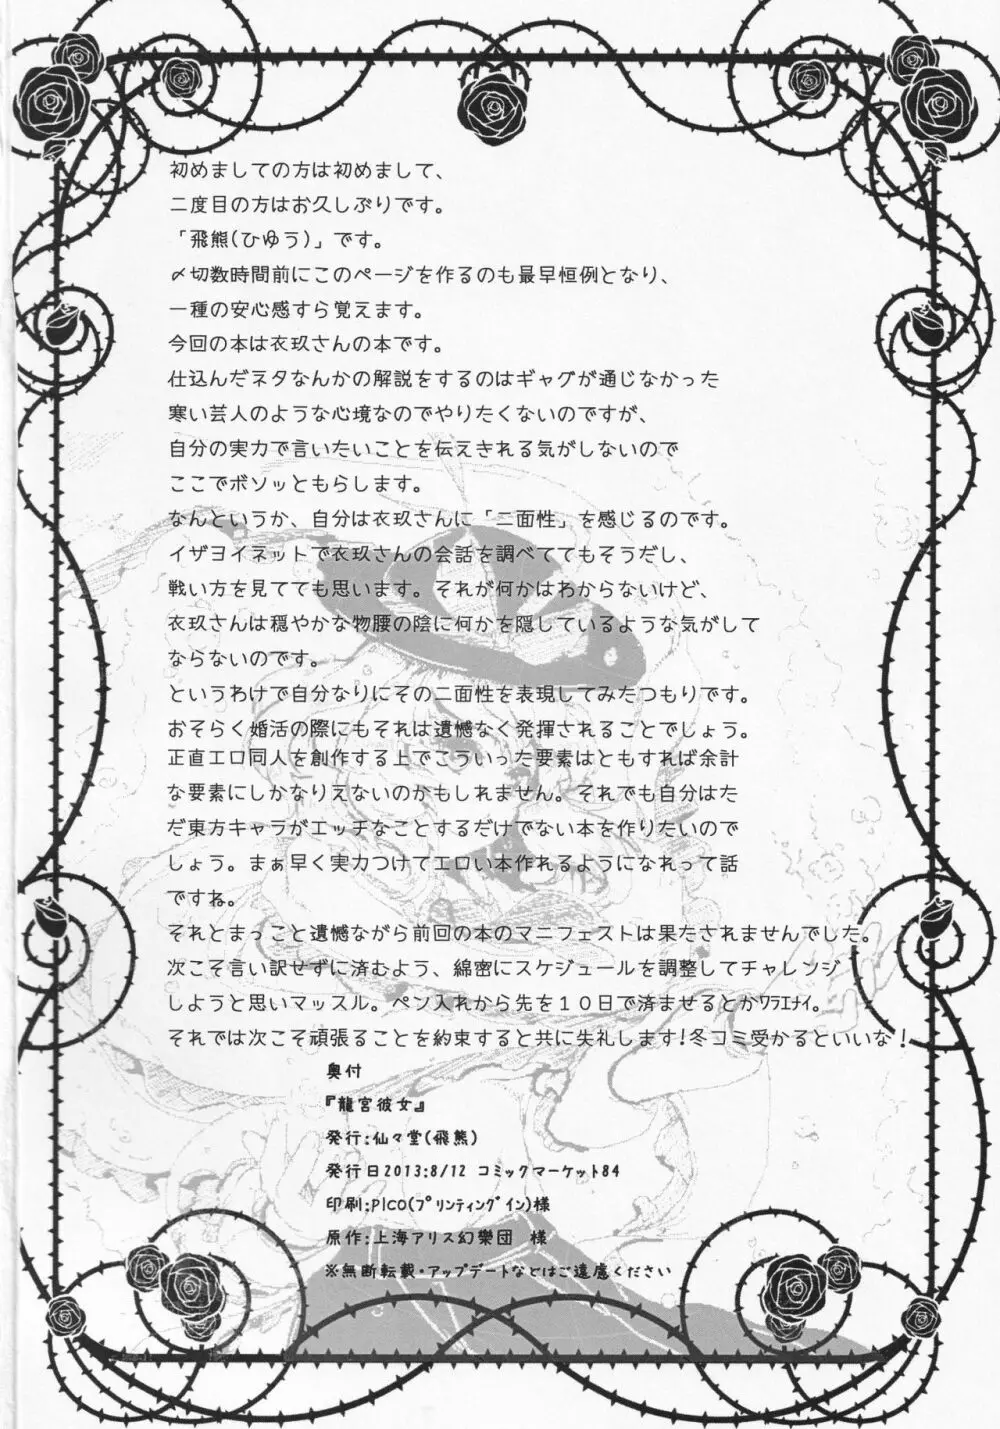 初めましての方は初めまして、
二度目の方はお久しぶりです。
「飛熊(ひゆう)」です。
〆切数時間前にこのページを作るのも最早恒例となり、
一種の安心感すら覚えます。
今回の本は衣玖さんの本です。
仕込んだネタなんかの解説をするのはギャグが通じなかった
寒い芸人のような心境なのでやりたくないのですが、
自分の実力で言いたいことを伝えきれる気がしないので
ここでボソッともらします。
なんというか、自分は衣玖さんに「二面性」を感じるのです。
イザヨイネットで衣玖さんの会話を調べててもそうだし、
戦い方を見てても思います。それが何かはわからないけど、
衣玖さんは穏やかな物腰の陰に何かを隠しているような気がして
ならないのです。
というわけで自分なりにその二面性を表現してみたつもりです。
おそらく婚活の際にもそれは遺憾なく発揮されることでしょう。
正直エロ同人を創作する上でこういった要素はともすれば余計
な要素にしかなりえないのかもしれません。それでも自分はた
だ東方キャラがエッチなことするだけでない本を作りたいので
しょう。まぁ早く実力つけてエロい本作れるようになれって話
ですね。
それとまっこと遺憾ながら前回の本のマニフェストは果たされませんでした。
次こそ言い訳せずに済むよう、綿密にスケジュールを調整してチャレンジ
しようと思いマッスル。ペン入れから先を10日で済ませるとかﾜﾗｴﾅｲ。
それでは次こそ頑張ることを約束すると共に失礼します!冬コミ受かるといいな!
奥付
『龍宮彼女』
発行:仙々堂(飛熊)
発行日2013:8/12 コミックマーケット84
印刷:PICO(ﾌﾟﾘﾝﾃｨﾝｸﾞｲﾝ)様
原作:上海アリス幻樂団 様
※無断転載・アップデートなどはご遠慮ください